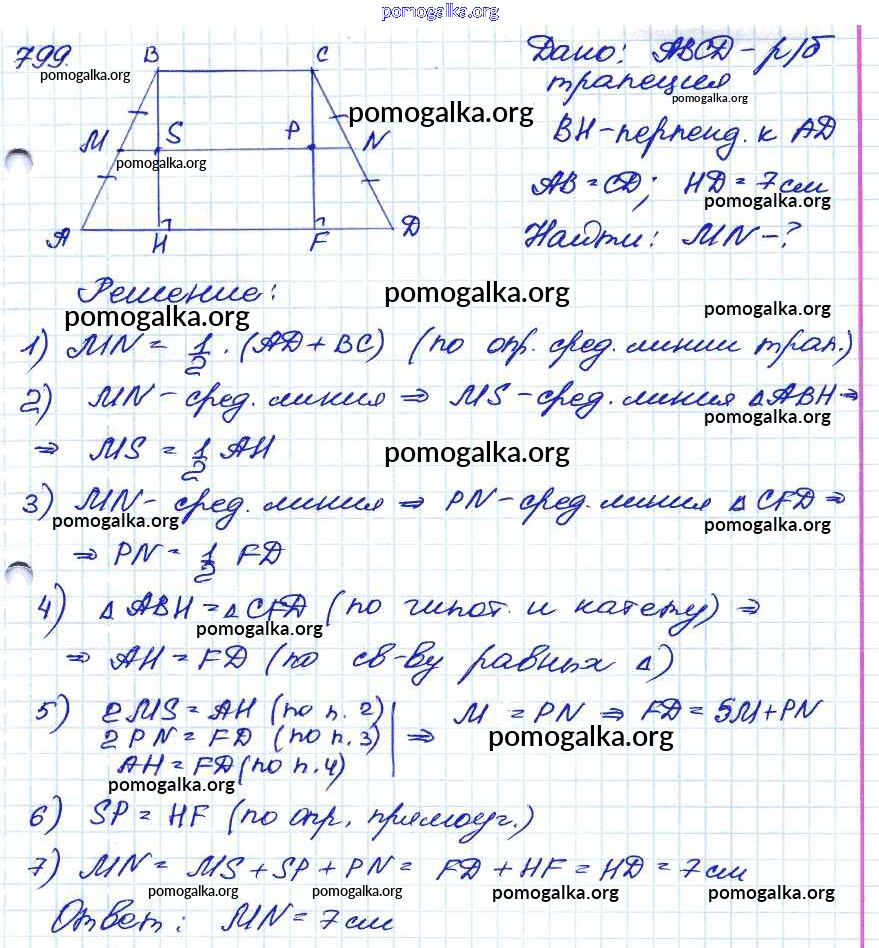 pomogalka.org
799.
pomogalka.org
B C
M S P N
A H F D
pomogalka.org
pomogalka.org
Дано: ABCD - р/б
трапеция
pomogalka.org
BH - перпенд. к AD
AB = CD; HD = 7 см
pomogalka.org
Найти: MN - ?
Решение:
pomogalka.org
pomogalka.org
pomogalka.org
1) MN = 1/2 · (AD + BC) (по опр. сред. линии трап.)
2) MN - сред. линия ⇒ MS - сред. линия △ABH ⇒
pomogalka.org
⇒ MS = 1/2 AH
pomogalka.org
3) MN - сред. линия ⇒ PN - сред. линия △CFD ⇒
pomogalka.org
pomogalka.org
⇒ PN = 1/2 FD
4) △ABH = △CFD (по гипот. и катету) ⇒
pomogalka.org
⇒ AH = FD (по св-ву равных △)
5) 2MS = AH (по п. 2)
2PN = FD (по п. 3)
AH = FD (по п. 4)
⇒ M = PN ⇒ FD = SM + PN
pomogalka.org
pomogalka.org
6) SP = HF (по опр. прямоуг.)
7) MN = MS + SP + PN = FD + HF = HD = 7 см
pomogalka.org pomogalka.org pomogalka.org pomogalka.org
Ответ: MN = 7 см